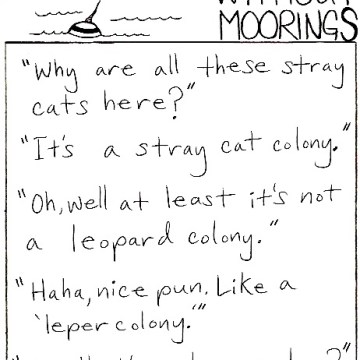 MOORINGS
"Why are all these stray
cats here?"
"It's a stray cat colony."
"Oh, well at least it's not
a leopard colony."
"Haha, nice pun. Like a
'leper colony.'"